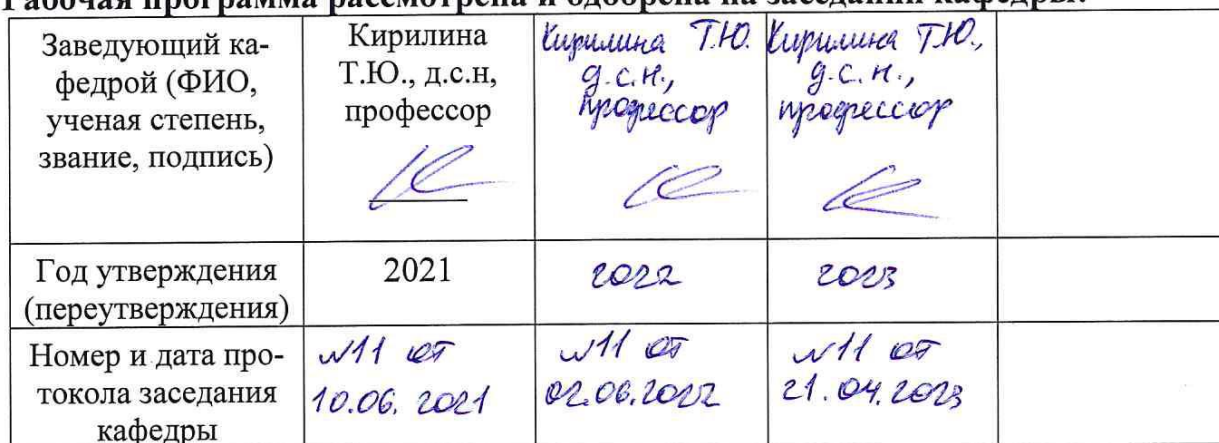 Рабочая программа рассмотрена и одобрена на заседании кафедры:
Заведующий ка-
федрой (ФИО,
ученая степень,
звание, подпись)
Кирилина
Т.Ю., д.с.н,
профессор
Кирилина Т.Ю.
д.с.н.,
профессор
Кирилина Т.Ю.,
д.с.н.,
профессор
Год утверждения
(переутверждения)
2021
2022
2023
Номер и дата про-
токола заседания
кафедры
№11 от
10.06.2021
№11 от
02.06.2022
№11 от
21.04.2023